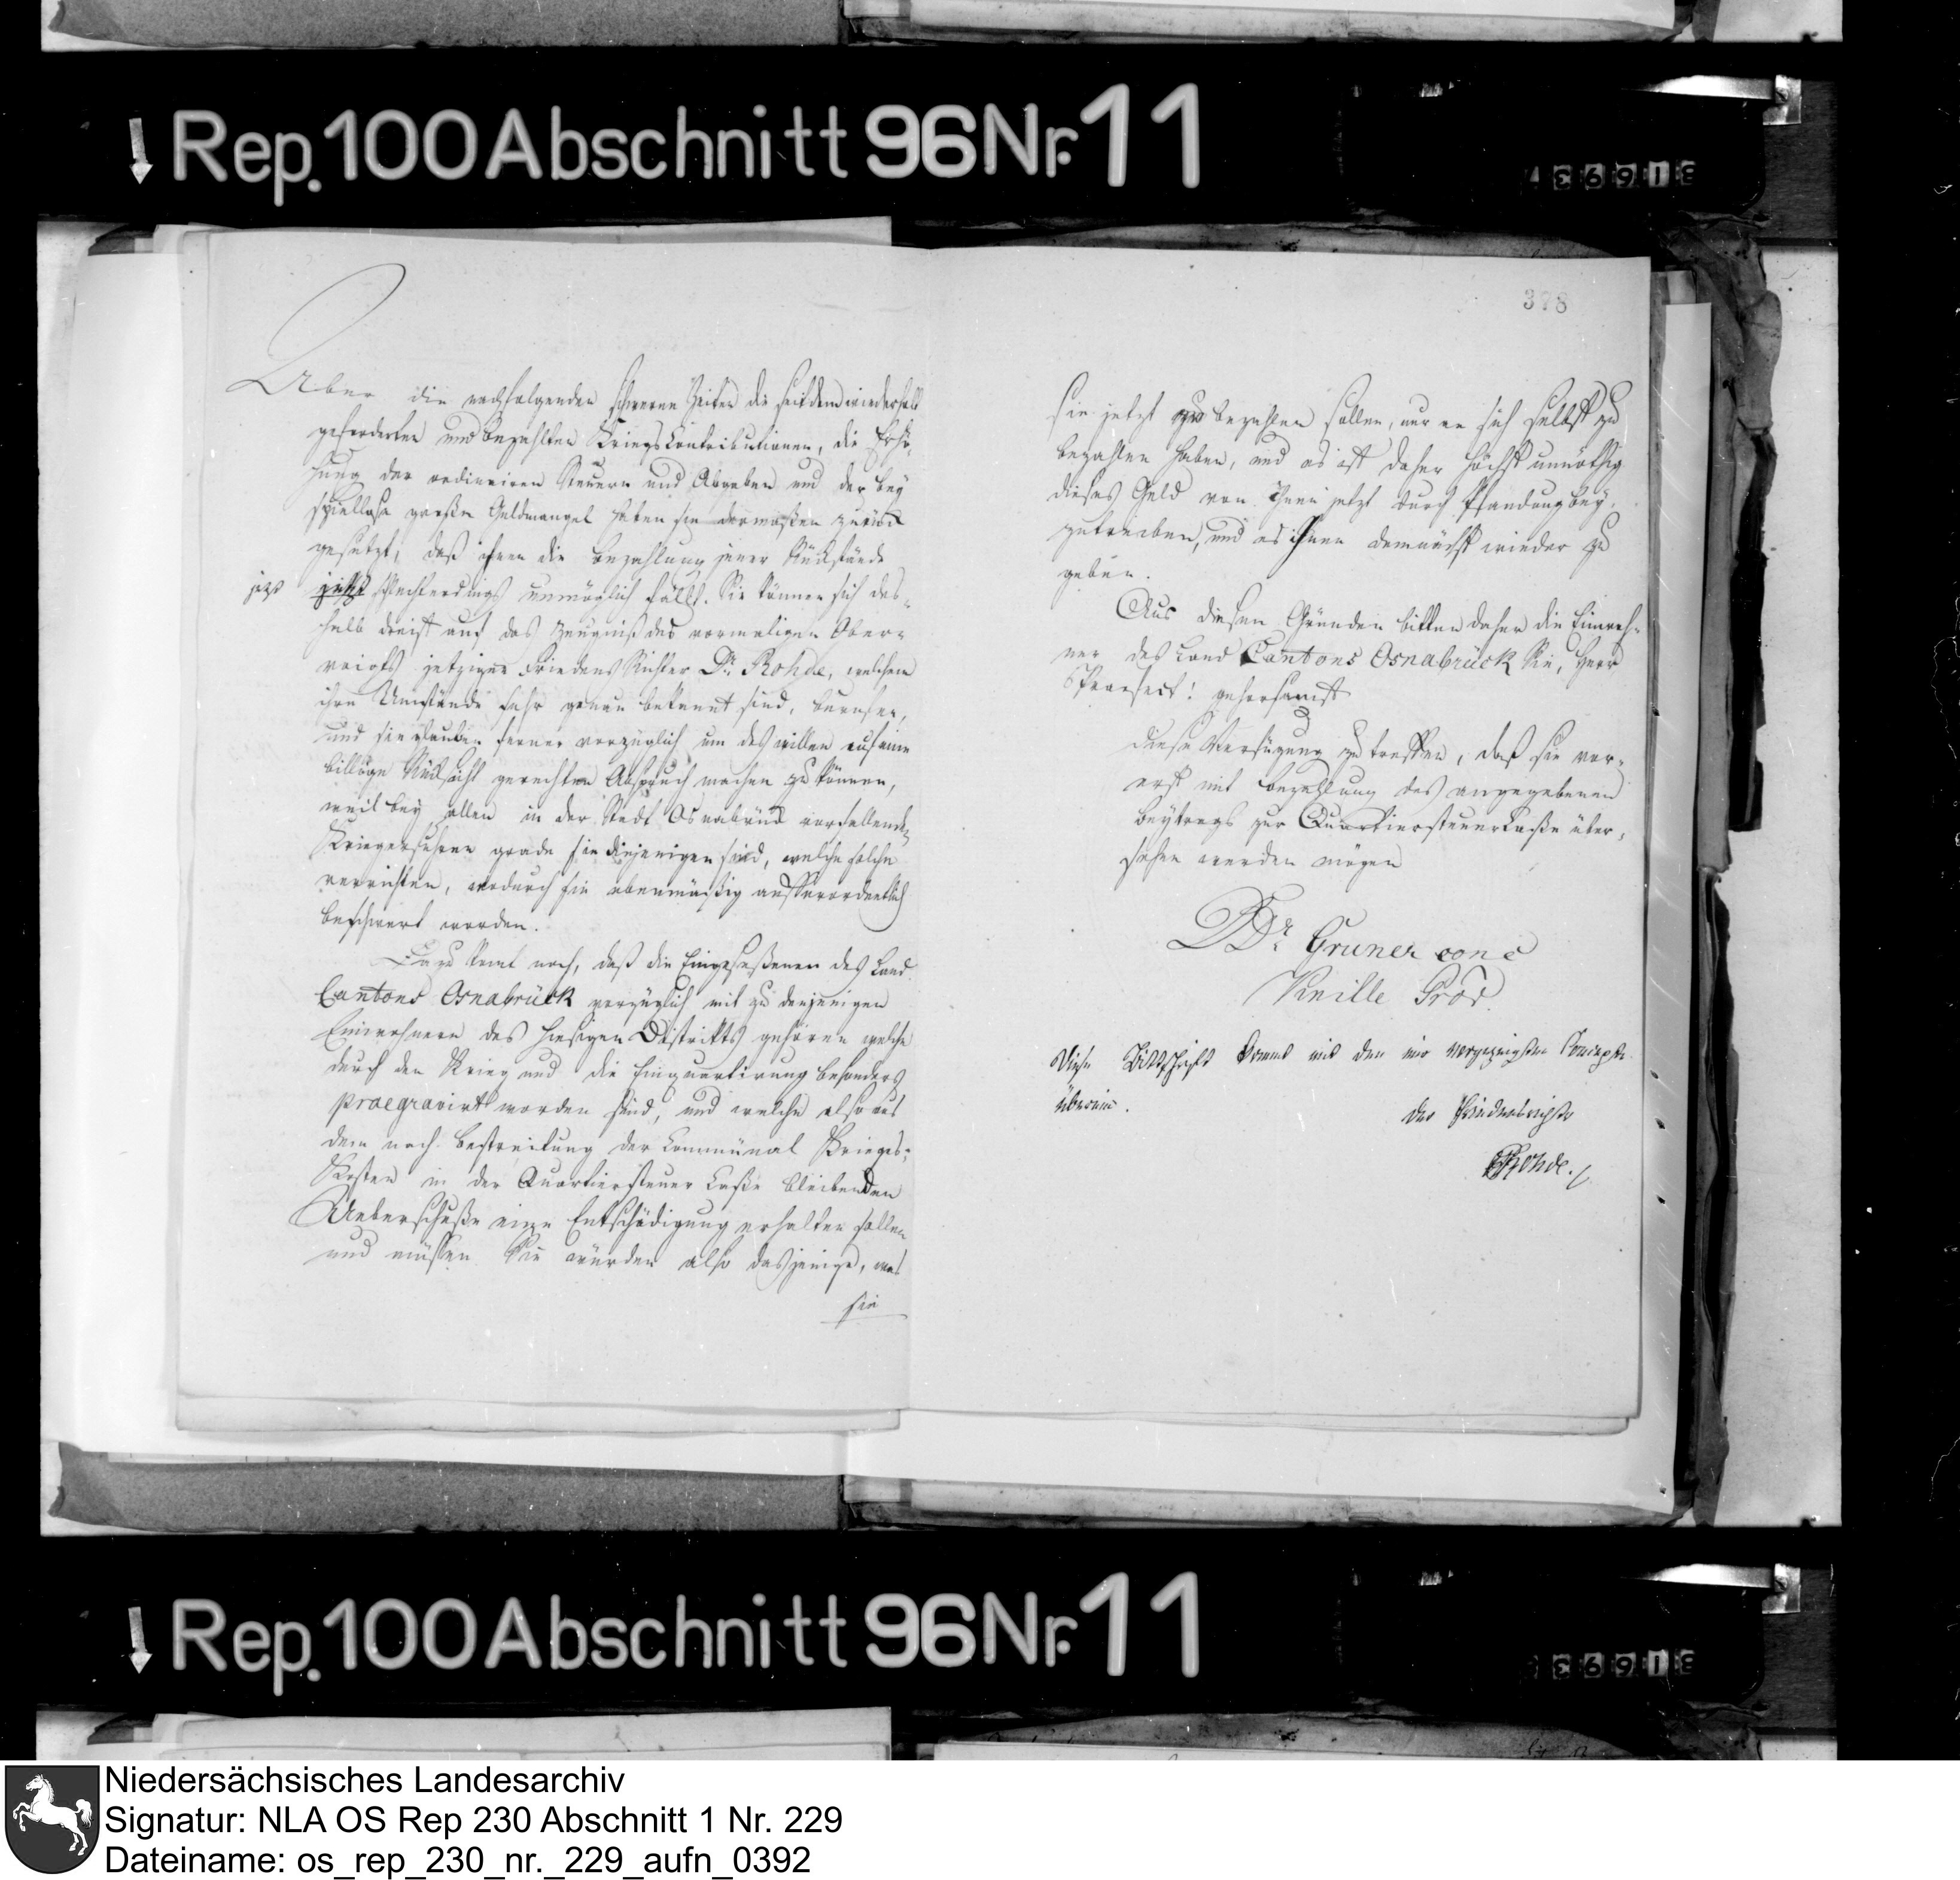 Rep. 100 Abschnitt 96 Nr. 11
316937
378
Aber die nachfolgenden schweren Zeiten die seitdem wiederholt
geforderten und bezahlten Kriegs Contributionen, die Erhö-
hung der ordinairen Steuern und Abgaben und der bey
spiellose große Geldmangel haben sie dermaßen zurück
gesetzt, daß ihnen die Bezahlung jener Rückstände
jezt jetzt schlechterdings unmöglich fällt. Sie können sich des-
halb dreist auf das Zeugniß des vormaligen Ober-
voigts jetzigen Friedens Richter Dr. Rohde, welchem
ihre Umstände sehr genau bekannt sind, berufen,
und sie glauben ferner vorzüglich um deswillen auf eine
billige Rücksicht gerechten Anspruch machen zu können,
weil bey allen in der Stadt Osnabrück vorfallenden
Kriegerfuhren grade sie diejenigen sind, welche solche
verrichten, wodurch sie ebenmäßig ausserordentlich
beschwert werden.
Dazu komt noch, daß die Eingesessenen des Land
Cantons Osnabrück vorzüglich mit zu denjenigen
Einwohnern des hiesigen Districkts gehören welche
durch den Krieg und die Einquartirung besonders
praegravirt worden sind, und welche also aus
dem nach Bestreitung der Communal Krieges-
Kosten in der Quartiersteuer Casse bleibenden
Ueberschusse eine Entschädigung erhalten sollen
und müssen. Sie würden also dasjenige, was
sie
sie jetzt zu bezahlen sollen, nur an sich selbst zu
bezahlen haben, und es ist daher höchst unnöthig
dieses Geld von ihnen jetzt durch Pfandung bey-
zutreiben, und es ihnen demnächst wieder zu
geben.
Aus diesen Gründen bitten daher die Einwoh-
ner des Land Cantons Osnabrück Sie, Herr
Praefect! gehorsamst
diese Verfügung zu treffen, daß sie vor-
erst mit Bezahlung des angegebenen
Beytrags zur Quartiersteuer Casse über-
sehen werden mögen
Dr. Gruner conc
Knille Proc.
Diese Bittschrift kommt mit dem mir vorgezeigten Concepte
überein.
Der Friedensrichter
Rohde.
Rep. 100 Abschnitt 96 Nr. 11
Niedersächsisches Landesarchiv
Signatur: NLA OS Rep 230 Abschnitt 1 Nr. 229
Dateiname: os_rep_230_nr._229_aufn_0392